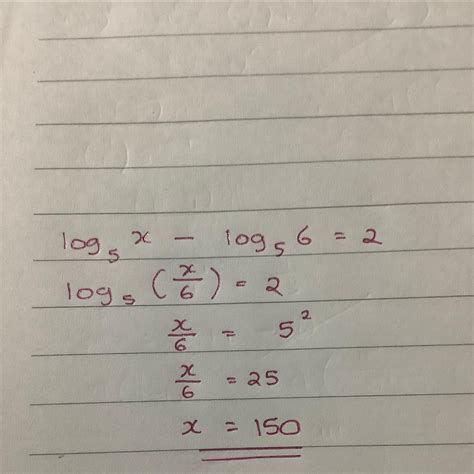 log₅ x − log₅ 6 = 2
log₅ (x/6) = 2
x/6 = 5²
x/6 = 25
x = 150